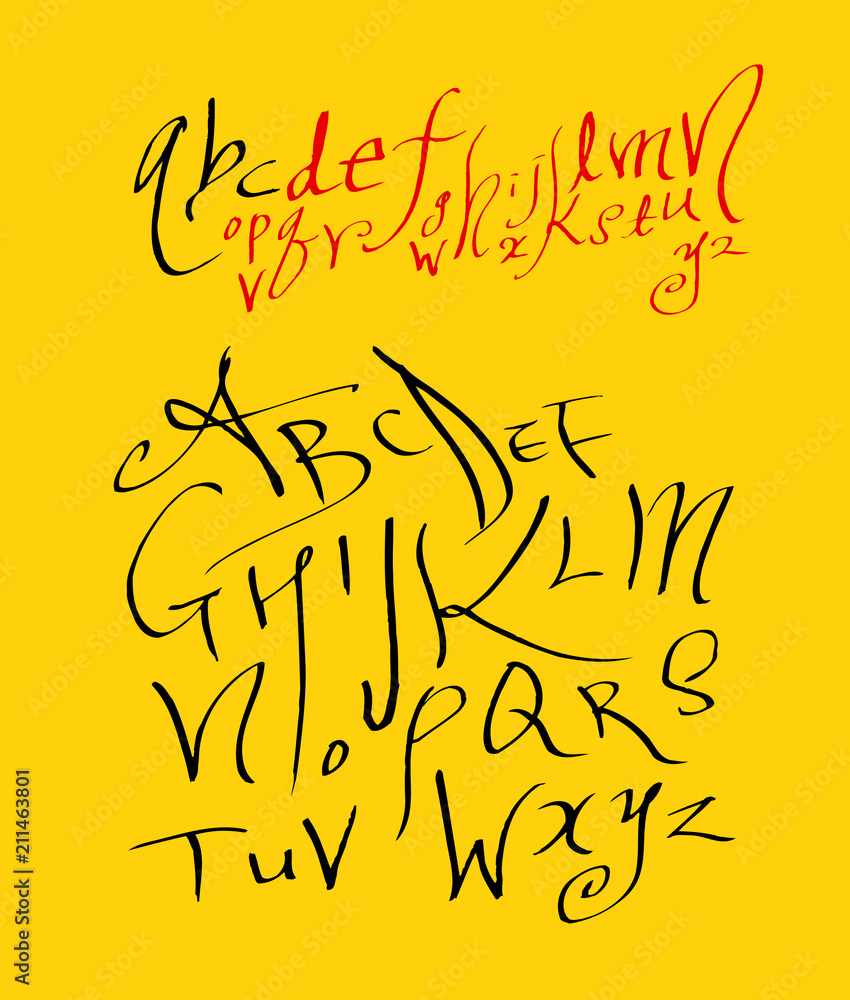 abcdefghijklmn
opqrstu
vwxyz
ABCDEF
GHIJKLM
NOPQRS
TUVWXYZ
Adobe Stock | #211463801